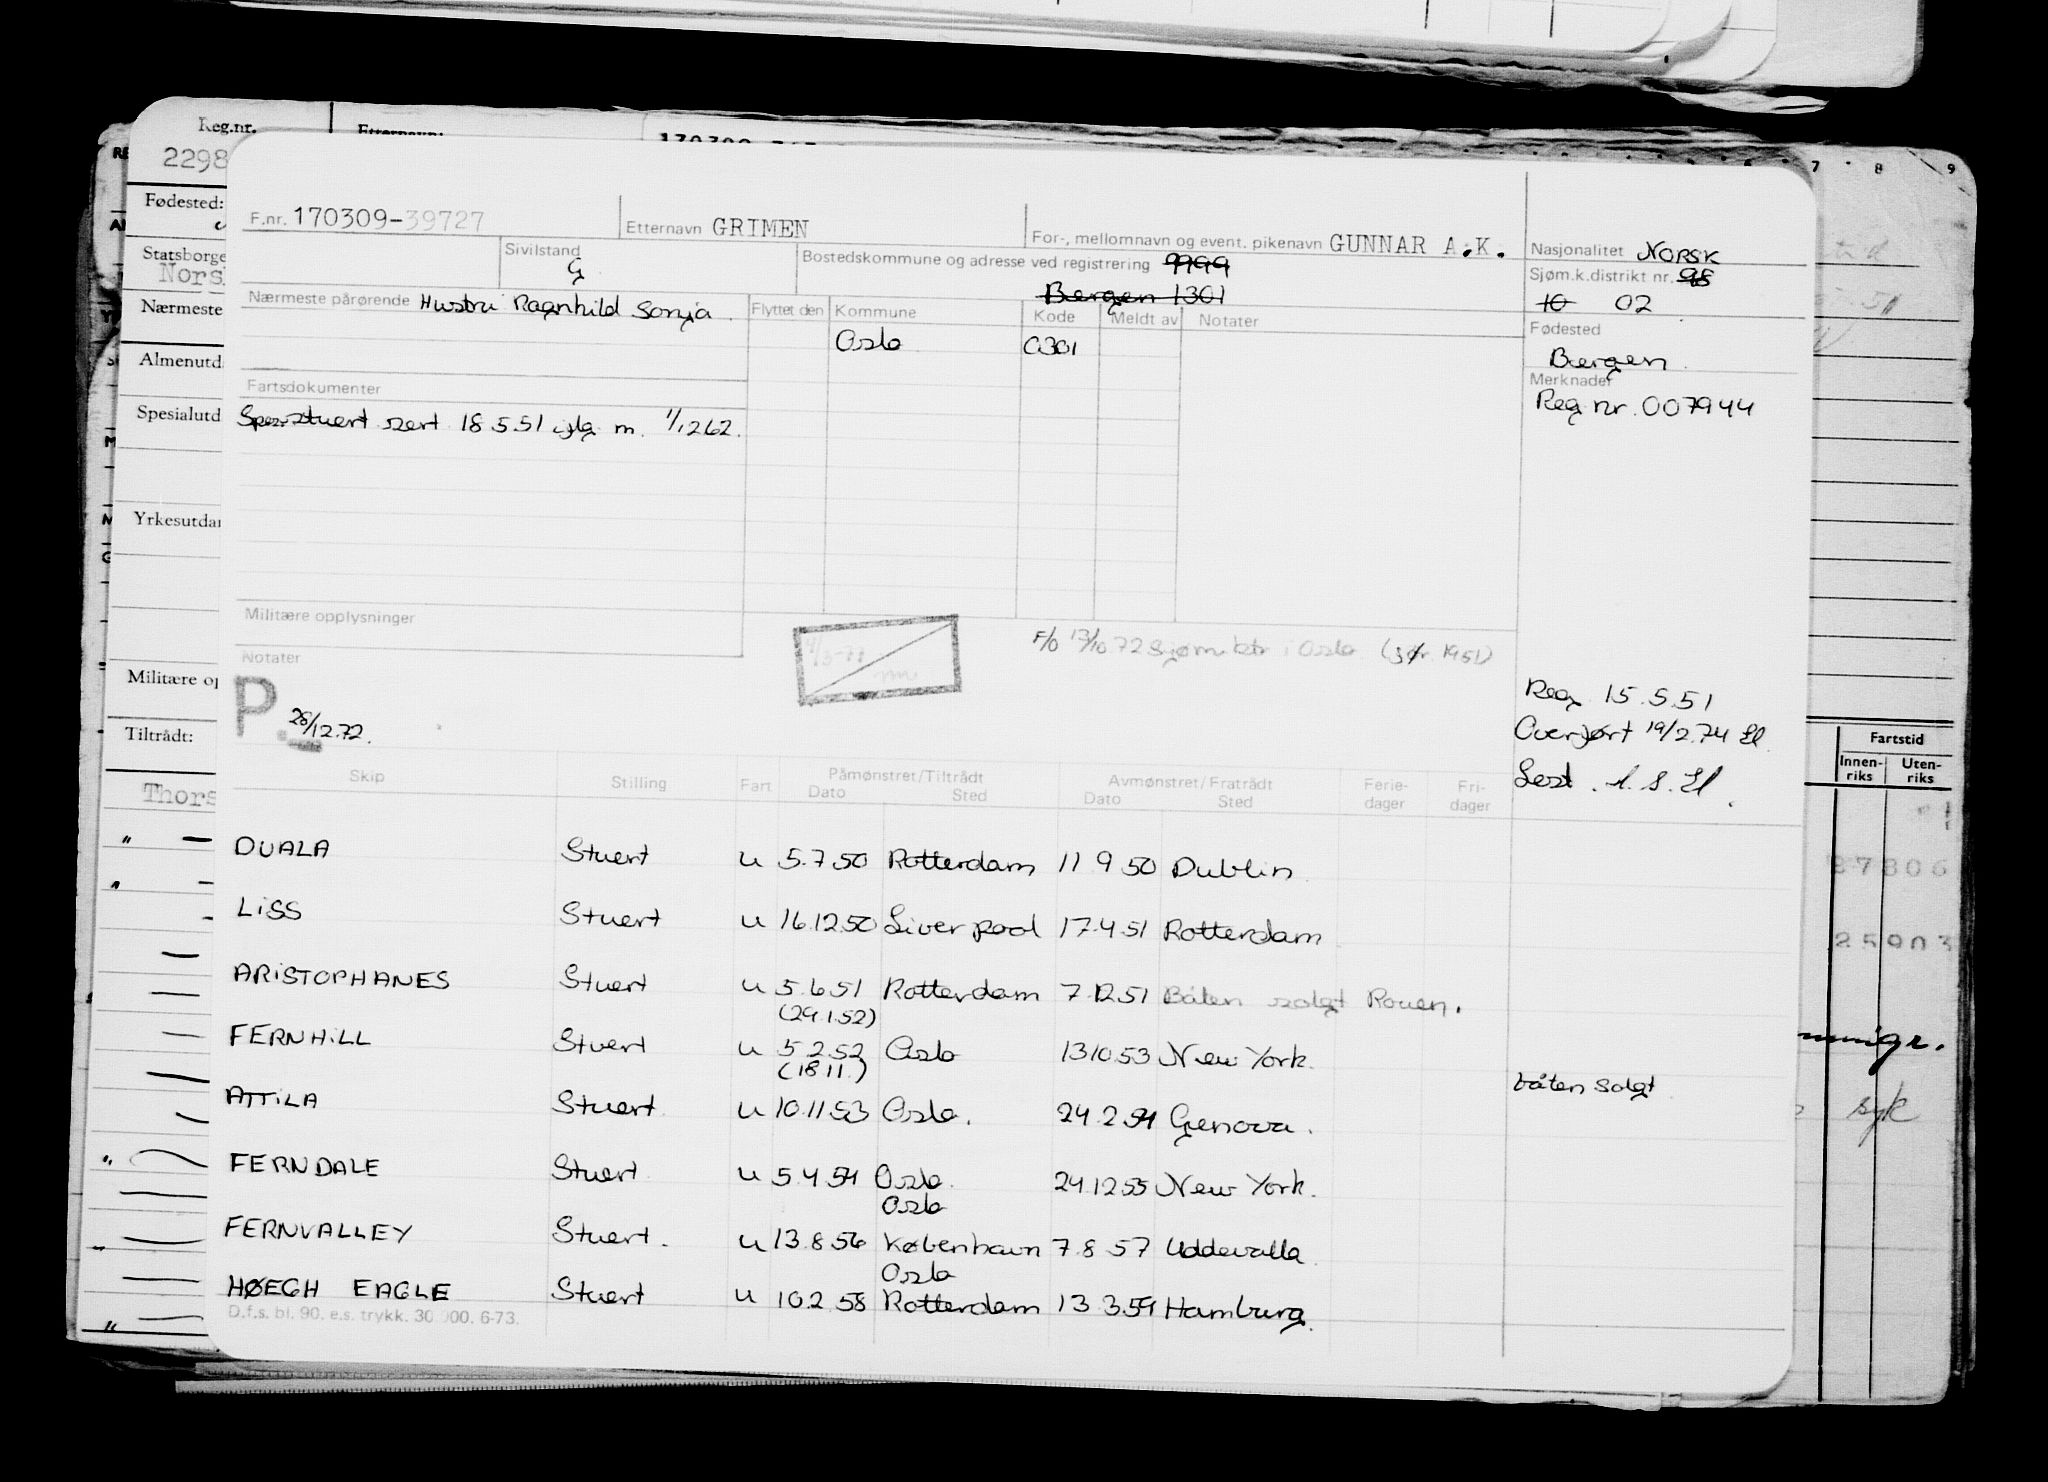 Reg.nr.
2298
Fødested:
Statsborge
Nors
Nærmeste
Almenutd
Spesialutd
Yrkesutdan
Militære op
Tiltrådt:
Thors
7 8 9
F.nr. 170309-39727
Etternavn GRIMEN
For-, mellomnavn og event. pikenavn GUNNAR A.K.
Nasjonalitet NORSK
Sivilstand
G
Bostedskommune og adresse ved registrering 9999
Bergen 1301
Sjøm.k.distrikt nr. 98
10 02
Nærmeste pårørende Hustru Ragnhild Sonja.
Flyttet den Kommune Kode Meldt av Notater
Oslo 0301
Fødested
Bergen.
Merknader
Reg nr. 007944
Fartsdokumenter
Spes.stuert sert 18.5.51 iflg m. 1/12 62.
Militære opplysninger
F/O 13/10 72 Sjøm.ktr i Oslo (sjør 1951)
Notater
P.
28/12.72.
Reg 15.5.51
Overført 19/2.74 El
Lest. A. S. El.
Skip Stilling Fart Påmønstret/Tiltrådt Dato Sted Avmønstret/Fratrådt Dato Sted Ferie-dager Fri-dager
DUALA Stuert u 5.7.50 Rotterdam 11 9 50 Dublin
LISS Stuert u 16.12.50 Liverpool 17.4.51 Rotterdam
ARISTOPHANES Stuert u 5.6.51 Rotterdam 7.12.51 Båten solgt Rouen.
(29.1.52)
FERNHILL Stuert u 5.2.52 Oslo 13.10.53 New York.
(18.11.)
ATTILA Stuert u 10.11.53 Oslo. 24.2.54 Genova. båten solgt
FERNDALE Stuert u 5.4.54 Oslo. 24.12.55 New York.
Oslo
FERNVALLEY Stuert. u 13.8.56 København 7.8.57 Uddevalla
Oslo
HØEGH EAGLE Stuert u 10.2.58 Rotterdam 13.3.59 Hamburg.
D.f.s. bl. 90. e.s. trykk. 30 000. 6-73.
Fartstid
Innen-riks Uten-riks
27806
25903
syk